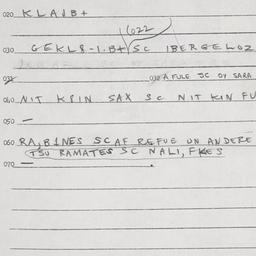 020 KLAIB+
1622
030 GEKLS-I.B+/SC IBERGELOZ
032 A FULE SC OY SARA
040 NIT KSIN SAX SC NIT KIN FU
050 —
060 RA, BINES SCAF REFUE UN ANDERE
TSU RAMATES SC NALI, FKES
070